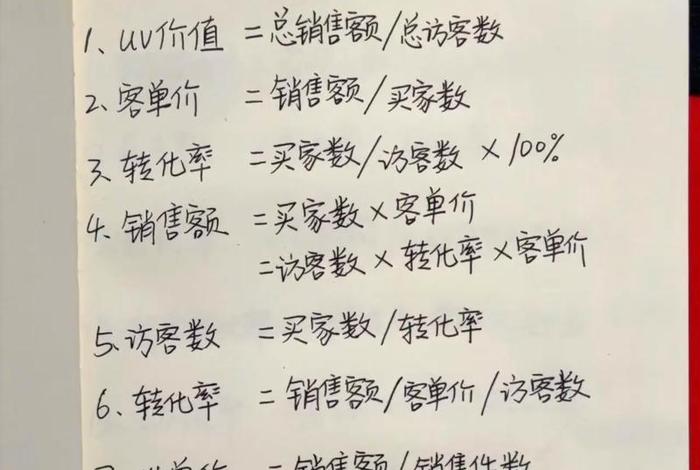 1、UV价值 =总销售额/总访客数
2、客单价 =销售额/买家数
3、转化率 =买家数/访客数×100%
4、销售额 =买家数×客单价
=访客数×转化率×客单价
5、访客数 =买家数/转化率
6、转化率 =销售额/客单价/访客数
单价 =销售额/销售件数